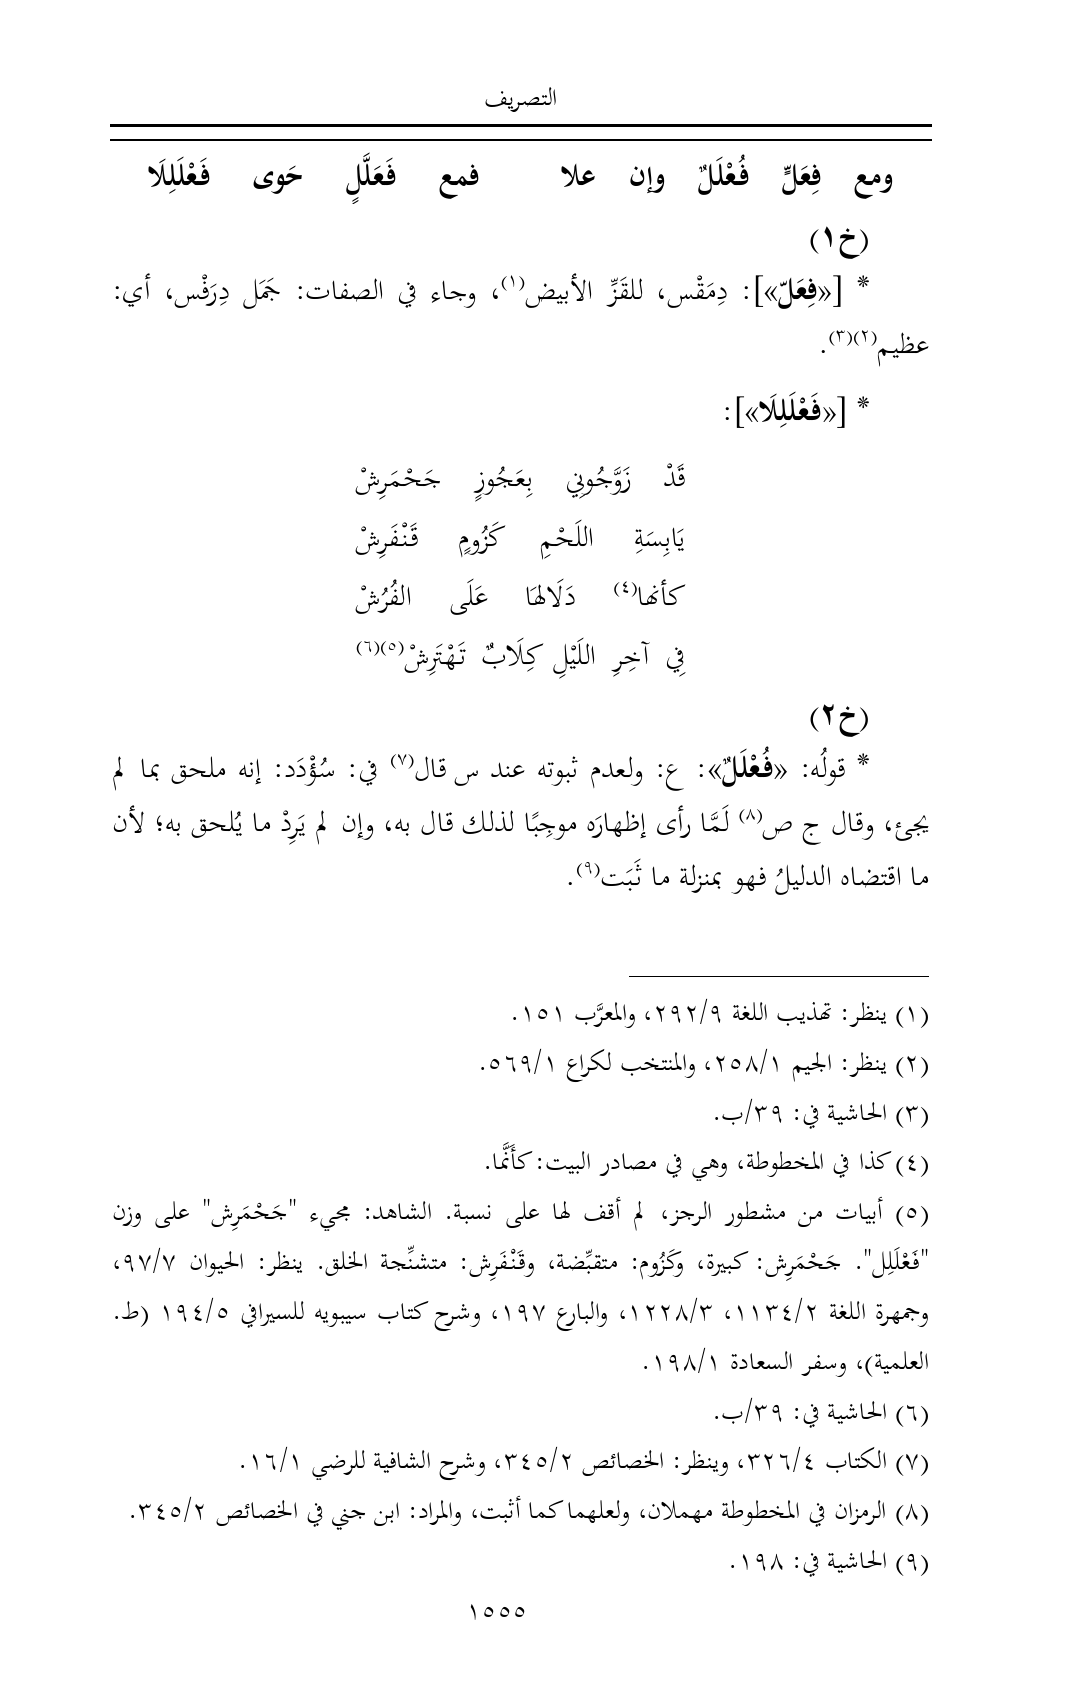 التصريف
ومع فِعَلٍّ فُعْلَلٌ وإن علا فمع فَعَلَّلٍ حَوى فَعْلَلِلَا
(خ١)
* [«فِعَلّ»]: دِمَقْس، للقَزِّ الأبيض(١)، وجاء في الصفات: جَمَل دِرَفْس، أي:
عظيم(٢)(٣).
* [«فَعْلَلِلَا»]:
قَدْ زَوَّجُونِي بِعَجُوزٍ جَحْمَرِشْ
يَابِسَةِ اللَحْمِ كَزُومٍ قَنْفَرِشْ
كأنها(٤) دَلَالهَا عَلَى الفُرُشْ
فِي آخِرِ اللَيْلِ كِلَابٌ تَهْتَرِشْ(٥)(٦)
(خ٢)
* قولُه: «فُعْلَلٌ»: ع: ولعدم ثبوته عند س قال(٧) في: سُؤْدَد: إنه ملحق بما لم
يجئ، وقال ج ص(٨) لَمَّا رأى إظهارَه موجِبًا لذلك قال به، وإن لم يَرِدْ ما يُلحق به؛ لأن
ما اقتضاه الدليلُ فهو بمنزلة ما ثَبَت(٩).
(١) ينظر: تهذيب اللغة ٢٩٢/٩، والمعرَّب ١٥١.
(٢) ينظر: الجيم ٢٥٨/١، والمنتخب لكراع ٥٦٩/١.
(٣) الحاشية في: ٣٩/ب.
(٤) كذا في المخطوطة، وهي في مصادر البيت: كأَنَّما.
(٥) أبيات من مشطور الرجز، لم أقف لها على نسبة. الشاهد: مجيء "جَحْمَرِش" على وزن
"فَعْلَلِل". جَحْمَرِش: كبيرة، وكَزُوم: متقبِّضة، وقَنْفَرِش: متشنِّجة الخلق. ينظر: الحيوان ٩٧/٧،
وجمهرة اللغة ١١٣٤/٢، ١٢٢٨/٣، والبارع ١٩٧، وشرح كتاب سيبويه للسيرافي ١٩٤/٥ (ط.
العلمية)، وسفر السعادة ١٩٨/١.
(٦) الحاشية في: ٣٩/ب.
(٧) الكتاب ٣٢٦/٤، وينظر: الخصائص ٣٤٥/٢، وشرح الشافية للرضي ١٦/١.
(٨) الرمزان في المخطوطة مهملان، ولعلهما كما أثبت، والمراد: ابن جني في الخصائص ٣٤٥/٢.
(٩) الحاشية في: ١٩٨.
١٥٥٥